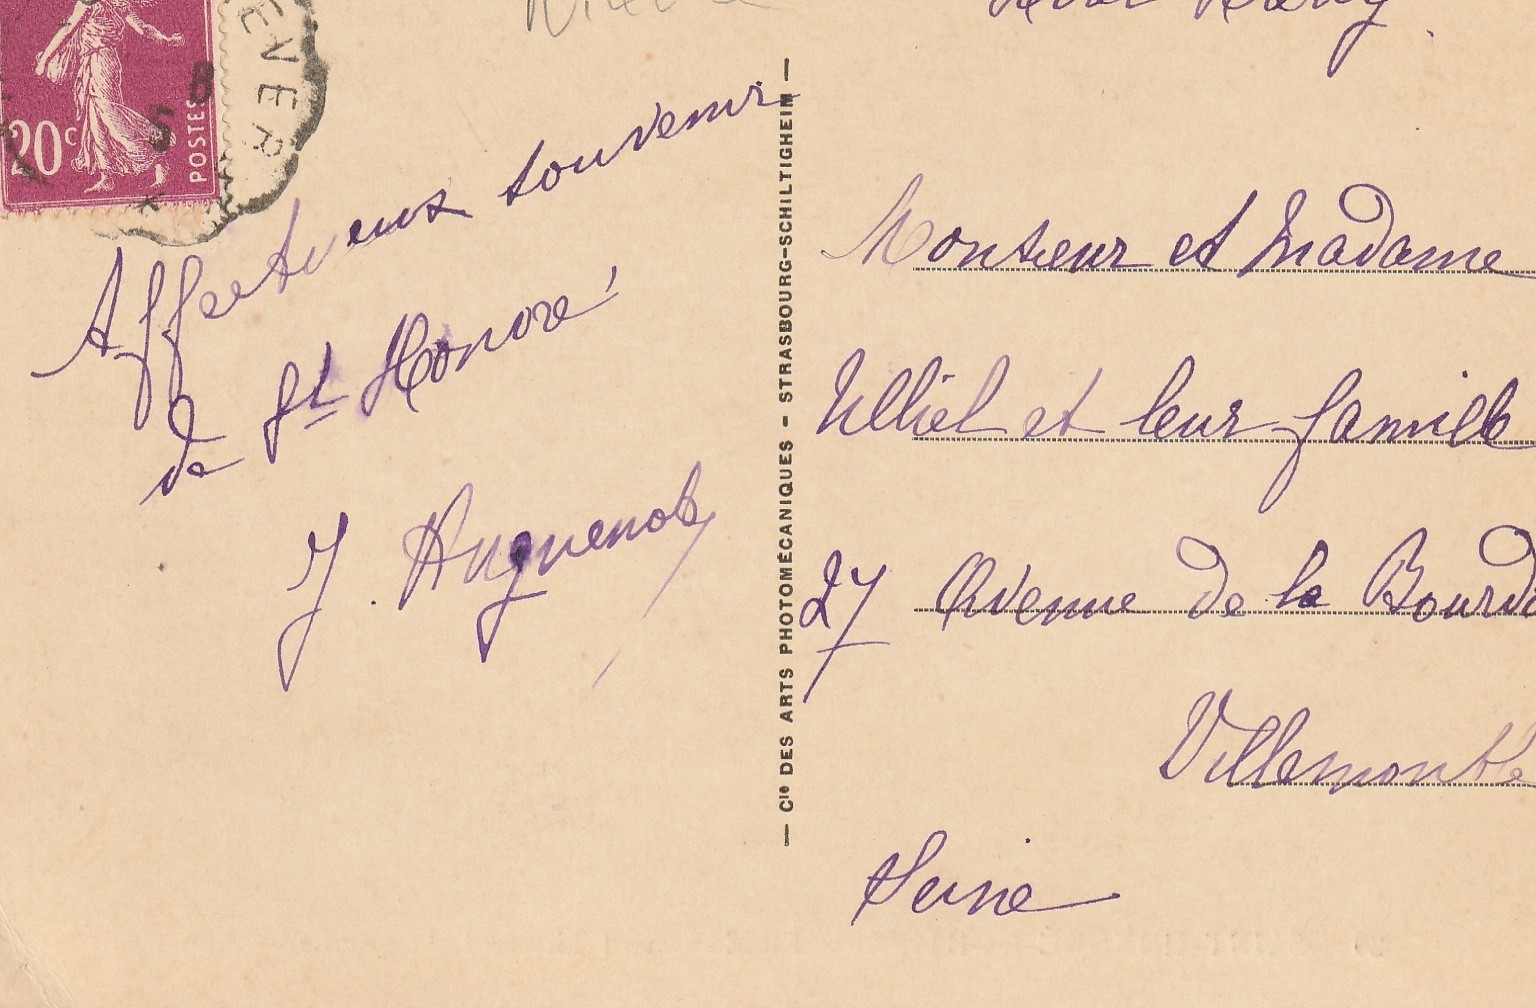 20c
POSTES
Affectueux souvenir
de St Honoré
J. Huguenot
— Cie DES ARTS PHOTOMÉCANIQUES – STRASBOURG-SCHILTIGHEIM —
Monsieur et Madame
Ulliel et leur famille
27 Avenue de la Bourdo
Villemomble
Seine